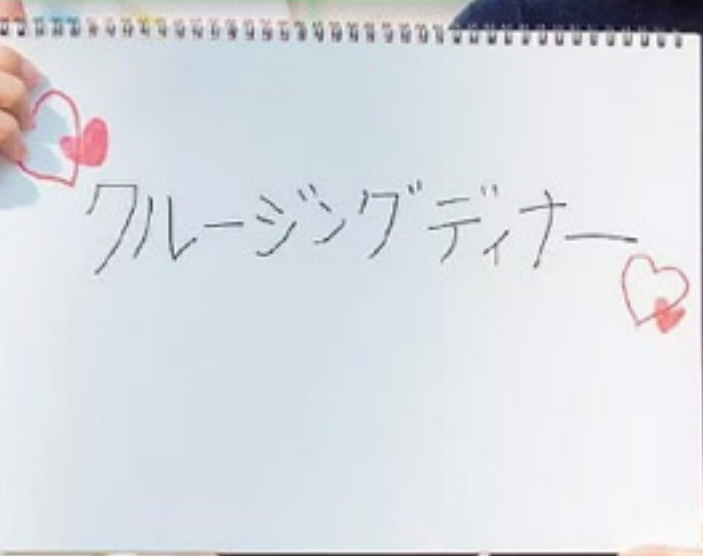 クルージングディナー